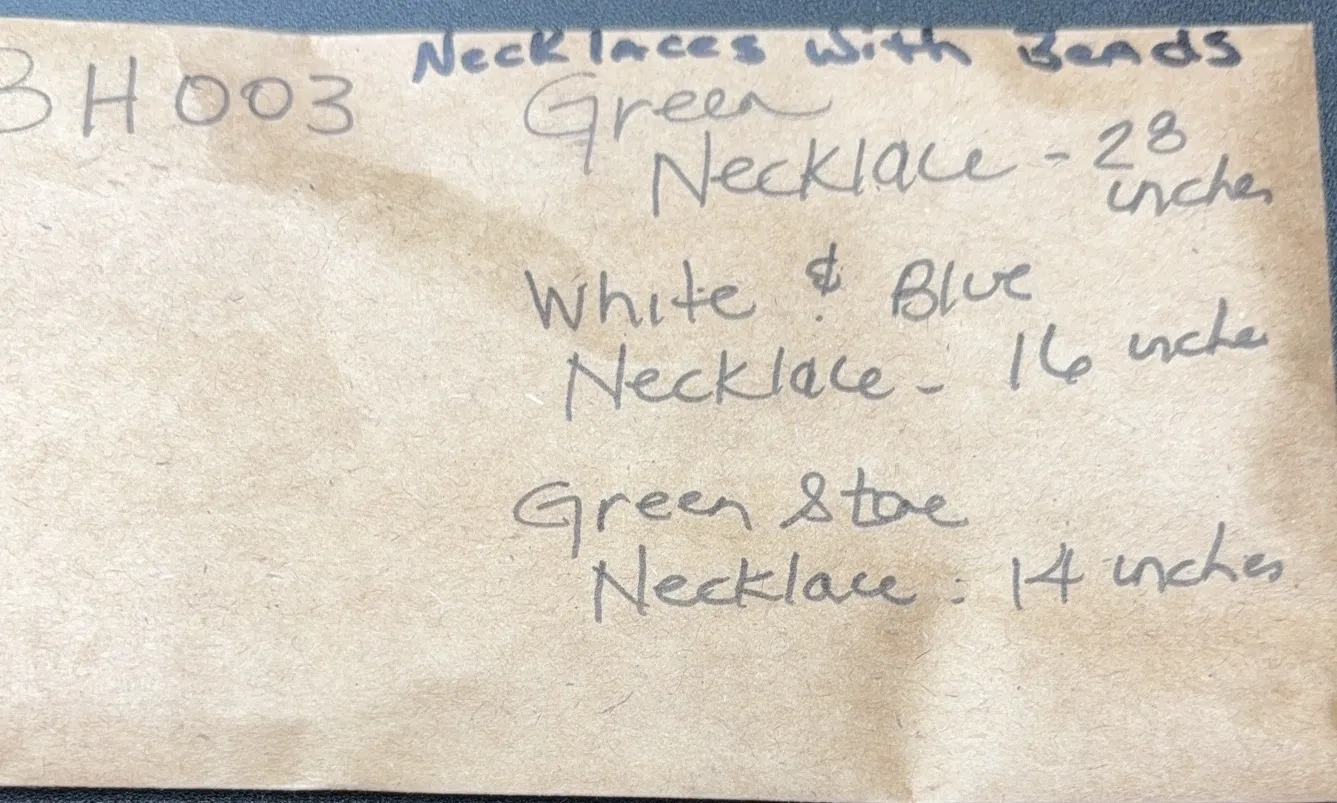 Necklaces with Beads
BH003
Green
Necklace - 28
inches
White & Blue
Necklace - 16 inches
Green Stone
Necklace : 14 inches